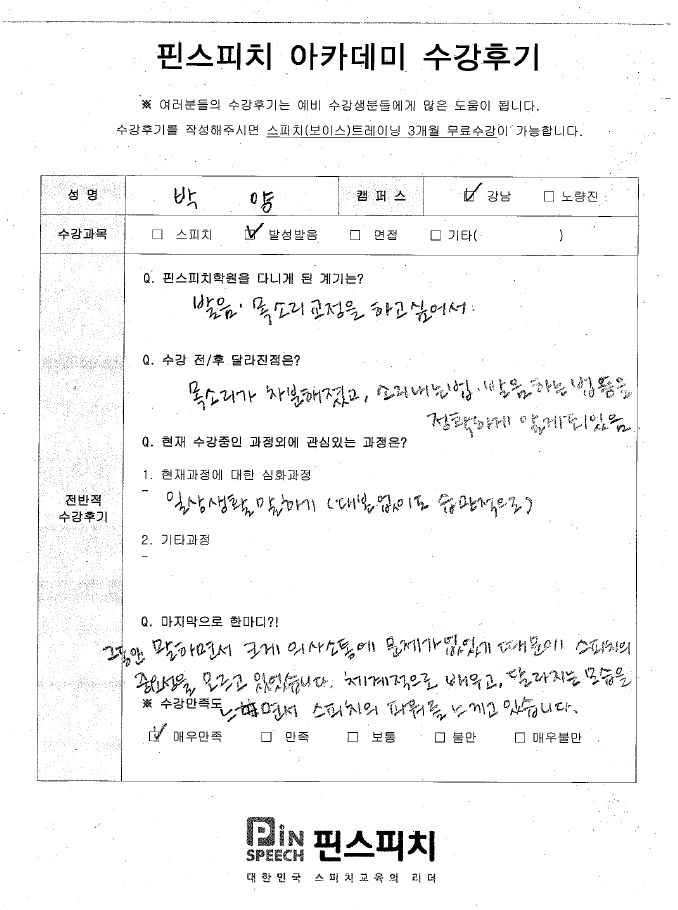 핀스피치 아카데미 수강후기
※ 여러분들의 수강후기는 예비 수강생분들에게 많은 도움이 됩니다.
수강후기를 작성해주시면 스피치(보이스)트레이닝 3개월 무료수강이 가능합니다.
성 명 박 양 캠 퍼 스 ☑ 강남 □ 노량진
수강과목 □ 스피치 ☑ 발성발음 □ 면접 □ 기타( )
전반적
수강후기
Q. 핀스피치학원을 다니게 된 계기는?
발음·목소리 교정을 하고싶어서.
Q. 수강 전/후 달라진점은?
목소리가 차분해졌고, 소리내는법·발음하는법 등을
정확하게 알게되었음
Q. 현재 수강중인 과정외에 관심있는 과정은?
1. 현재과정에 대한 심화과정
- 일상생활 말하기 (대본없이도 습관적으로)
2. 기타과정
-
Q. 마지막으로 한마디?!
그동안 말하면서 크게 의사소통에 문제가 없었기 때문에 스피치의
중요성을 모르고 있었습니다. 체계적으로 배우고, 달라지는 모습을
※ 수강만족도 느끼면서 스피치의 파워를 느끼고 있습니다.
☑ 매우만족 □ 만족 □ 보통 □ 불만 □ 매우불만
PiN SPEECH 핀스피치
대한민국 스피치교육의 리더